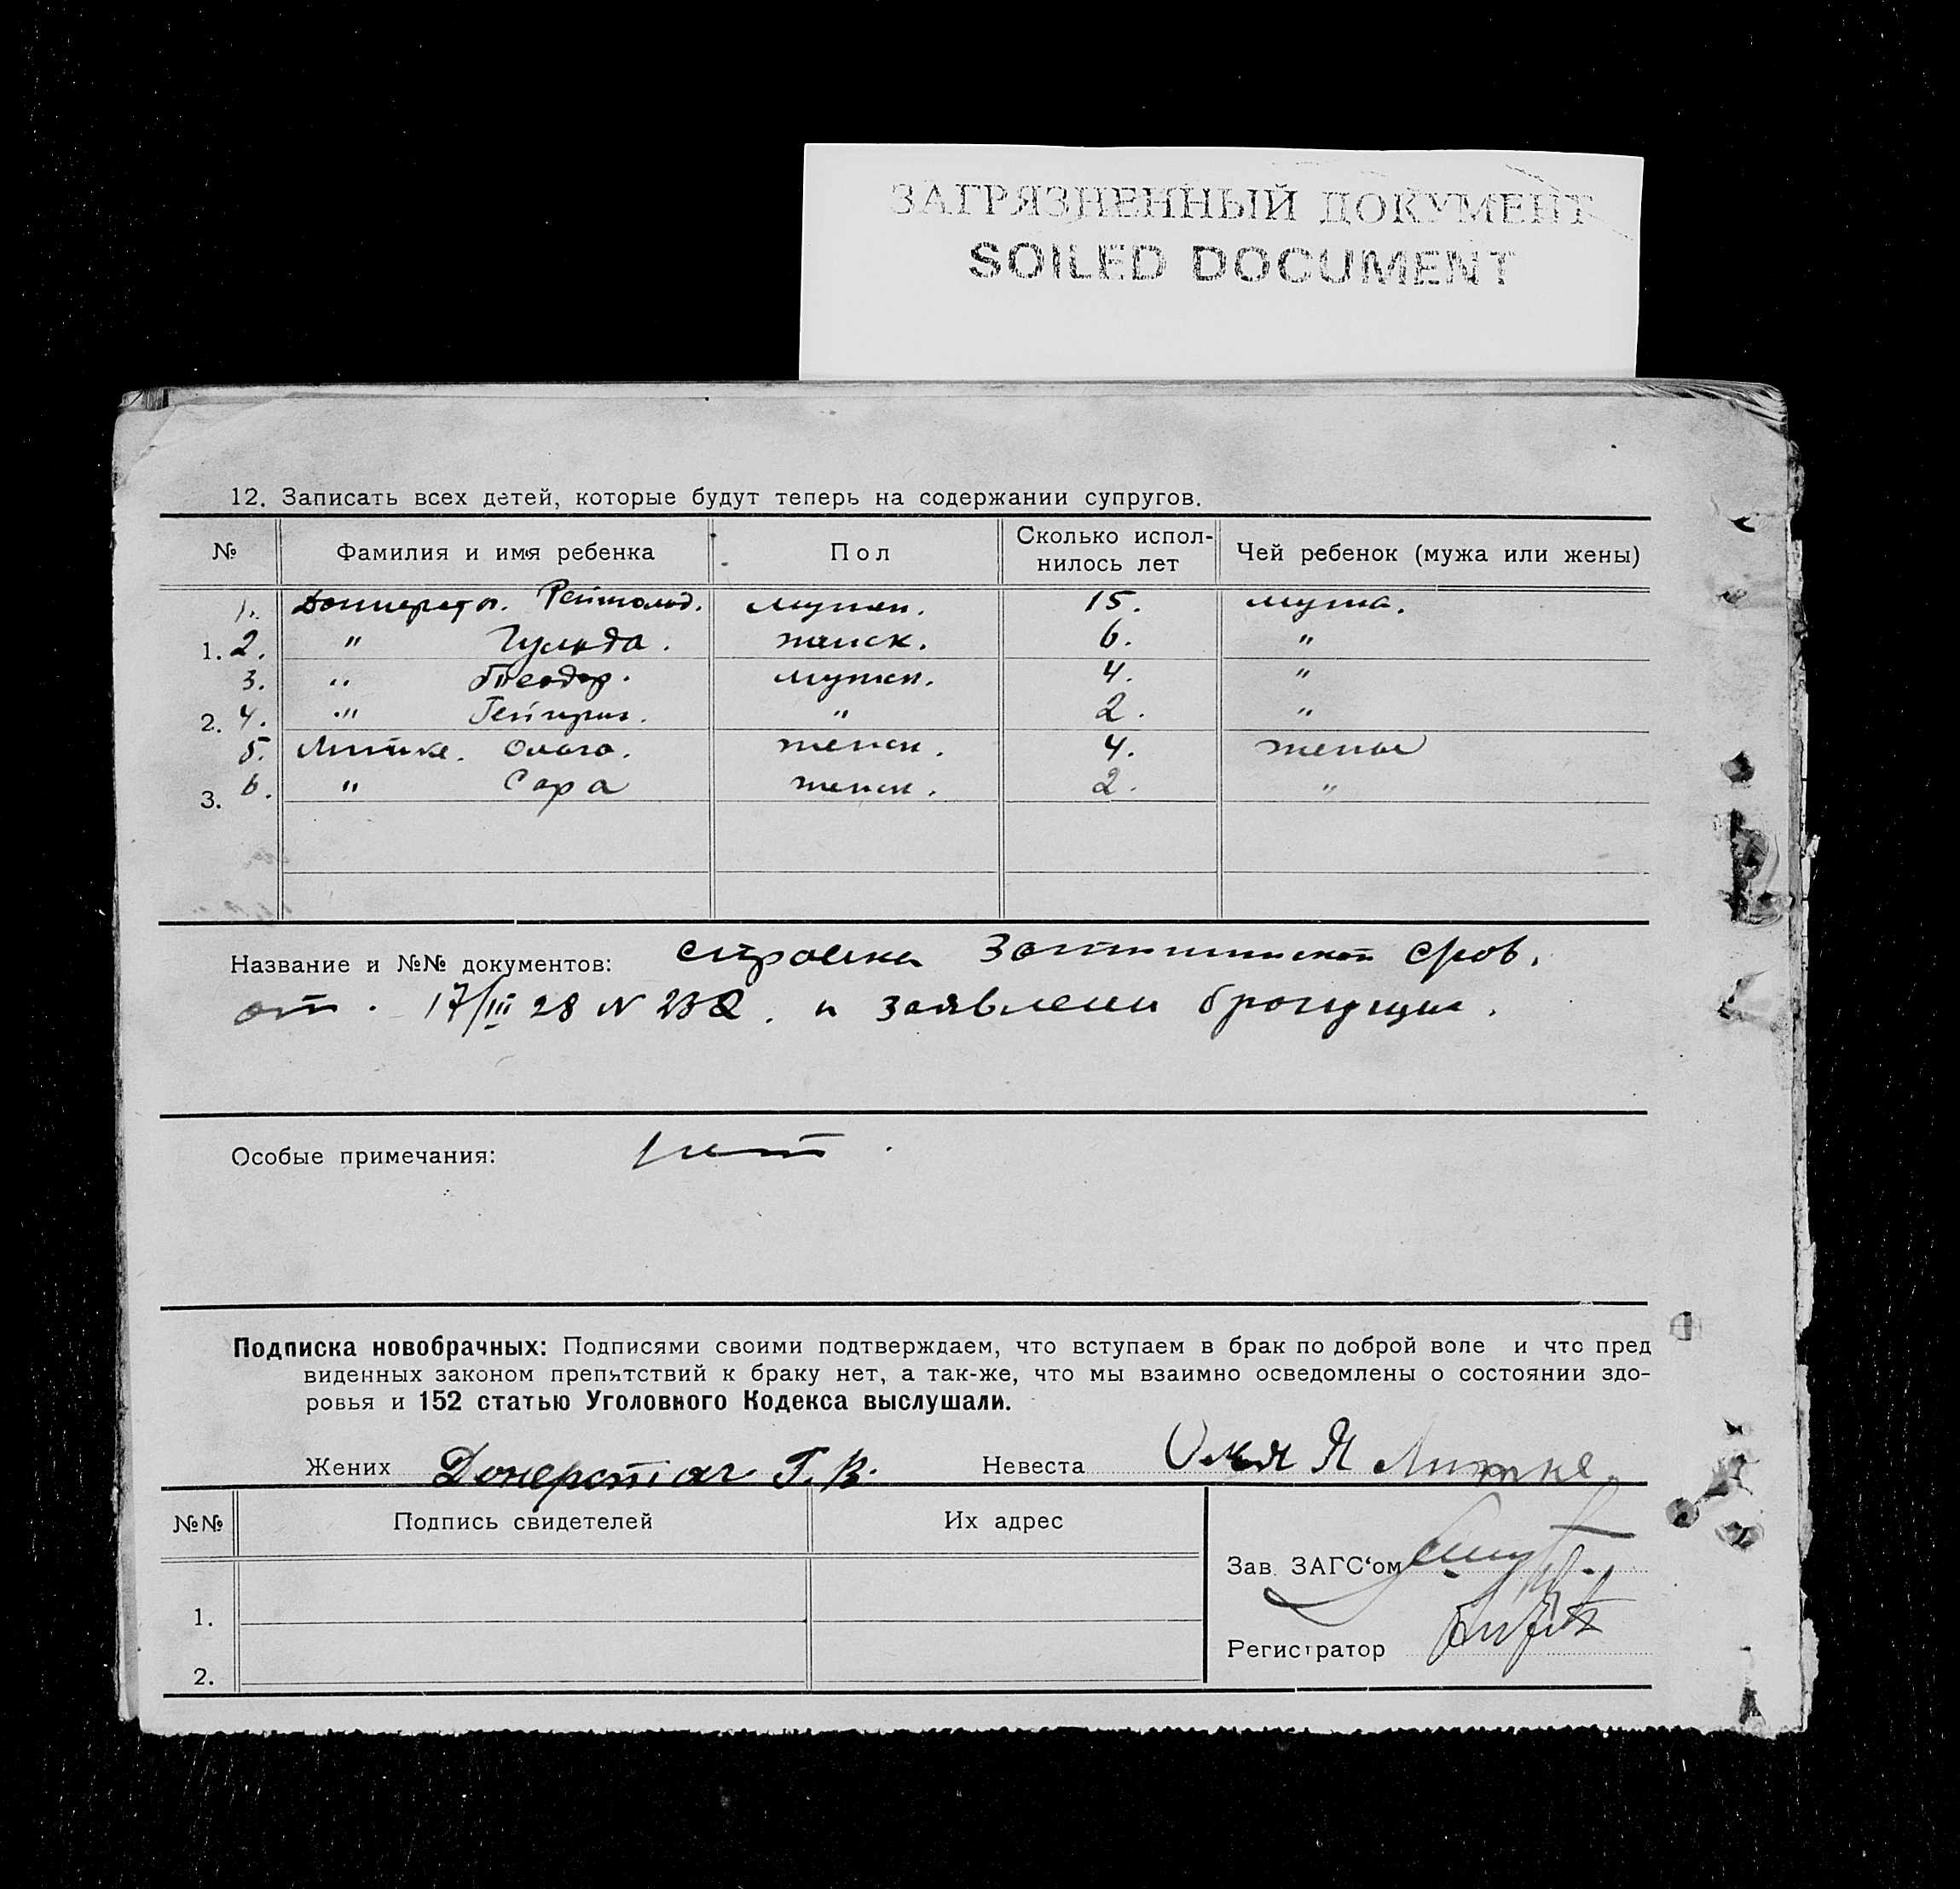 ЗАГРЯЗНЕННЫЙ ДОКУМЕНТ
SOILED DOCUMENT
12. Записать всех детей, которые будут теперь на содержании супругов.
№ Фамилия и имя ребенка Пол Сколько испол-нилось лет Чей ребенок (мужа или жены)
1. Рейнольд. мужск. 15. мужа.
1. 2. " Гульда. женск. 6. "
3. " Теодор. мужск. 4. "
2. 4. " Гейнрих. " 2. "
5. Литке. Ольга. женск. 4. жены
3. 6. " Сара женск. 2. "
Название и №№ документов: справка
от. 17/III 28 N 232. и заявлении брачущих.
Особые примечания: нет.
Подписка новобрачных: Подписями своими подтверждаем, что вступаем в брак по доброй воле и что пред
виденных законом препятствий к браку нет, а так-же, что мы взаимно осведомлены о состоянии здо-
ровья и 152 статью Уголовного Кодекса выслушали.
Жених Донерстаг Г. В. Невеста Я Литке.
№№ Подпись свидетелей Их адрес
Зав. ЗАГС'ом
1.
Регистратор
2.